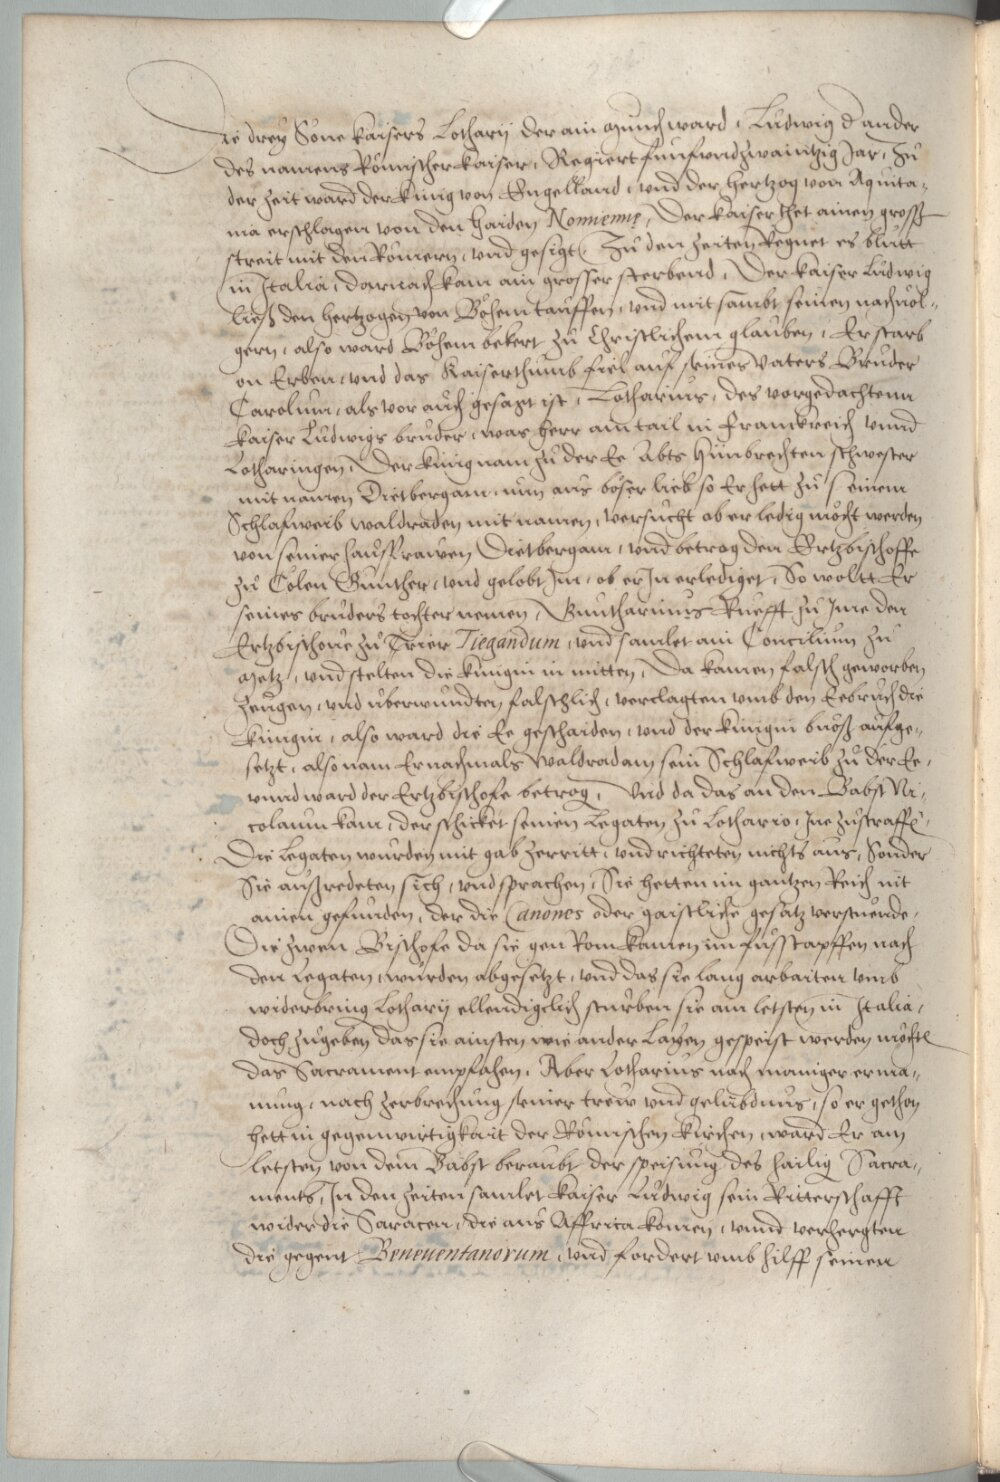 Die drey Söne kaisers Lotharij der ain Münch ward, Ludwig d ander
des namens Römischer kaiser, Regiert funfundzwaintzig Jar, Zu
der zeit ward der künig von Engelland, und der hertzog von Aquita-
nia erschlagen von den haiden Der kaiser thet ainen grossen
streit mit den Römern, und gesigt, Zu den zeiten Regnet es blutt
in Italia, darnach kam ain grosser sterbend, Der kaiser Ludwig
ließ den hertzogen von Böhem tauffen, und mit sambt seinen nachvol-
gern, also ward Böhem bekert zu Christlichem glauben, Er starb
on Erben, und das Kaiserthumb fiel auf seines Vaters Bruder
Carolum, als vor auch gesagt ist, Lotharius, des vorgedachtenn
kaiser Ludwigs bruder, was herr ain tail in Franckreich unnd
Lotharingen, Der künig nam zu der Ee Abts Hünbrechten schwester
mit namen Dietbergam, nun aus böser lieb so Er hett zu seinem
Schlafweib Waldraden mit namen, versucht ob er ledig möcht werden
von seiner hausfrawen Dietbergam, und betrog den Ertzbischoffe
zu Cölen Gunther, und gelobt Im, ob er In erlediget, So woltt Er
seines bruders tochter nemen, Guntharinus Ruefft zu Ime den
Ertzbischove zu Trier Tiegandum, und samlet ain Concilium zu
Metz, und stelten die künigin in mitten, Da kamen falsch geworben
zeugen, und überwundten falschlich, verclagten umb den Eebruch die
künigin, also ward die Ee geschaiden, und der künigin buoß aufge-
setzt, also nam Er nachmals Waldradam sein Schlafweib zu der Ee,
unnd ward der Ertzbischofe betrog, Und da das an den Babst Ni-
colaum kam, der schicket seinen Legaten zu Lothario, Ine zu straffen,
Die Legaten wurden mit gab zerritt, und richteten nichts aus, Sonder
Sie ausredeten sich, und sprachen, Sie hetten im gantzen Reich nit
ainen gefunden, der die Canones oder gaistliche gesatz verstuende,
Die zwen Bischofe da sie gen Rom kamen im fusstapffen nach
den Legaten, wurden abgesetzt, und das sie lang arbaiten umb
widerbring Lotharij ellendigclich sturben sie am letsten in Italia,
doch zugeben das sie ainsten wie ander Layen gespeist werden möchten
das Sacrament empfahen, Aber Lotharius nach maniger erma-
nung, nach zerbrechung seiner trew und gelübdnus, so er gethon
hett in gegenwirtigkait der Römischen Kirchen, ward Er am
letsten von dem Babst beraubt der speisung des hailig Sacra-
ments, In den zeiten samlet kaiser Ludwig sein Ritterschafft
wider die Saracen, die aus Affrica komen, unnd verhergten
die gegent Beneventanorum, und fordert umb hilff seinen